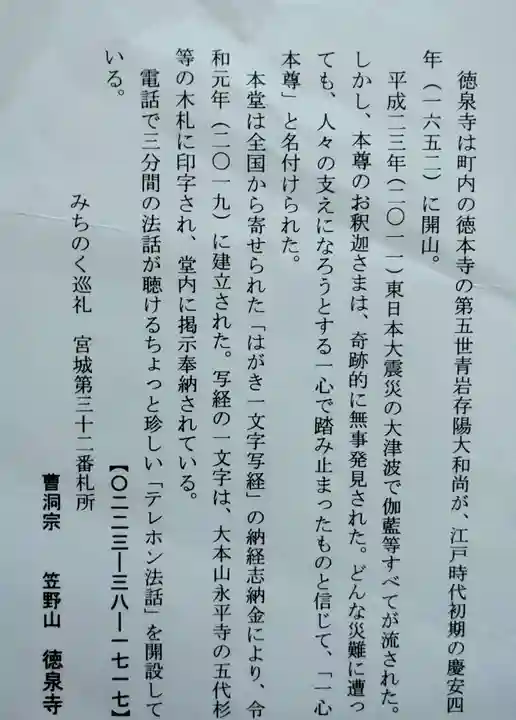 徳泉寺は町内の徳本寺の第五世青岩存陽大和尚が、江戸時代初期の慶安四
年（一六五二）に開山。
平成二三年（二〇一一）東日本大震災の大津波で伽藍等すべてが流された。
しかし、本尊のお釈迦さまは、奇跡的に無事発見された。どんな災難に遭っ
ても、人々の支えになろうとする一心で踏み止まったものと信じて、「一心
本尊」と名付けられた。
本堂は全国から寄せられた「はがき一文字写経」の納経志納金により、令
和元年（二〇一九）に建立された。写経の一文字は、大本山永平寺の五代杉
等の木札に印字され、堂内に掲示奉納されている。
電話で三分間の法話が聴けるちょっと珍しい「テレホン法話」を開設して
いる。
【〇二二三―三八―一七一七】
みちのく巡礼　宮城第三十二番札所
曹洞宗　笠野山　徳泉寺